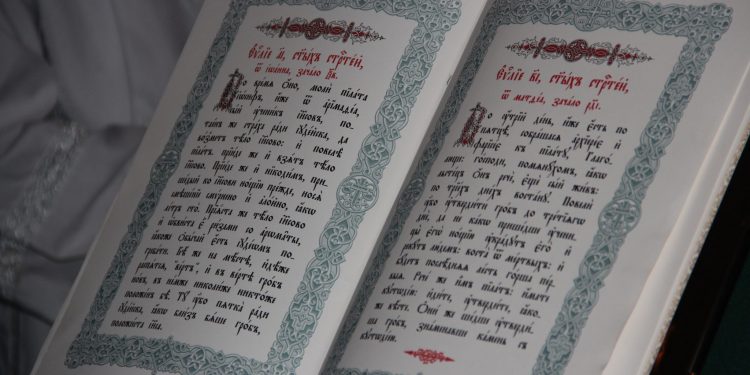 Еѵⷢ҇лїе а҃і, ст҃ы́хъ стрⷭ҇те́й,
ѿ і҆ѡа́нна, зача́ло
Во вре́мѧ ѻ҆́но, молѝ пїла́та
і҆ѡ́сифъ, и҆́же ѿ а҆рїмаѳе́а,
сы́й ᲂу҆чн҃и́къ і҆и҃совъ, по-
та́йнъ же стра́ха ра́ди і҆ꙋде́йска, да
во́зметъ тѣ́ло і҆и҃сово: и҆ повелѣ̀
пїла́тъ. прїи́де же и҆ взѧ́тъ тѣ́ло
і҆и҃сово. Прїи́де же и҆ нїкоди́мъ, при-
ше́дый ко і҆и҃сови но́щїю пре́жде, носѧ̀
смѣше́нїе смѵ́рнено и҆ а҆ло́йно, ꙗ҆́кѡ
лі́тръ сто̀. Прїѧ́ста же тѣ́ло і҆и҃сово
и҆ ѡ҆би́ста є҆̀ ри́зами со а҆рѡма̑ты,
ꙗ҆́коже ѻ҆бы́чай є҆́сть і҆ꙋде́ѡмъ по-
греба́ти. Бѣ́ же на мѣ́стѣ, и҆дѣ́же
распѧ́тсѧ, ве́ртъ, и҆ въ ве́ртѣ гро́бъ
но́въ, въ не́мже николи́же никто́же
положе́нъ бѣ̀. Тꙋ̀ ᲂу҆̀бо пѧтка̀ ра́ди
і҆ꙋде́йска, ꙗ҆́кѡ бли́з̾ бѧ́ше гро́бъ,
положи́ста і҆и҃са.
Еѵⷢ҇лїе в҃і, ст҃ы́хъ стрⷭ҇те́й,
ѿ матѳе́а, зача́ло
Во ᲂу҆́трїй де́нь, и҆́же є҆́сть по
пѧтцѣ̀, собра́шасѧ а҆рхїере́є и҆
фарїсе́є къ пїла́тꙋ, глаго́-
люще: го́споди, помѧнꙋ́хомъ, ꙗ҆́кѡ
льсте́цъ ѻ҆́нъ речѐ, є҆щѐ сы́й жи́въ:
по трїе́хъ дне́хъ воста́нꙋ. Повелѝ
ᲂу҆̀бо ᲂу҆тверди́ти гро́бъ до тре́тїѧгѡ
днѐ, да не ка́кѡ прише́дше ᲂу҆ченицы̀
є҆гѡ̀ но́щїю ᲂу҆кра́дꙋтъ є҆го̀ и҆
рекꙋ́тъ лю́демъ: воста̀ ѿ ме́ртвыхъ: и҆
бꙋ́детъ послѣ́днѧѧ ле́сть го́рша пе́р-
выѧ. Рече́ же и҆̀мъ пїла́тъ: и҆́мате
кꙋстѡді́ю: и҆ди́те, ᲂу҆тверди́те, ꙗ҆́ко-
же вѣ́сте. Ѻ҆ни́ же ше́дше ᲂу҆тверди́-
ша гро́бъ, зна́менавше ка́мень съ
кꙋстѡді́ею.